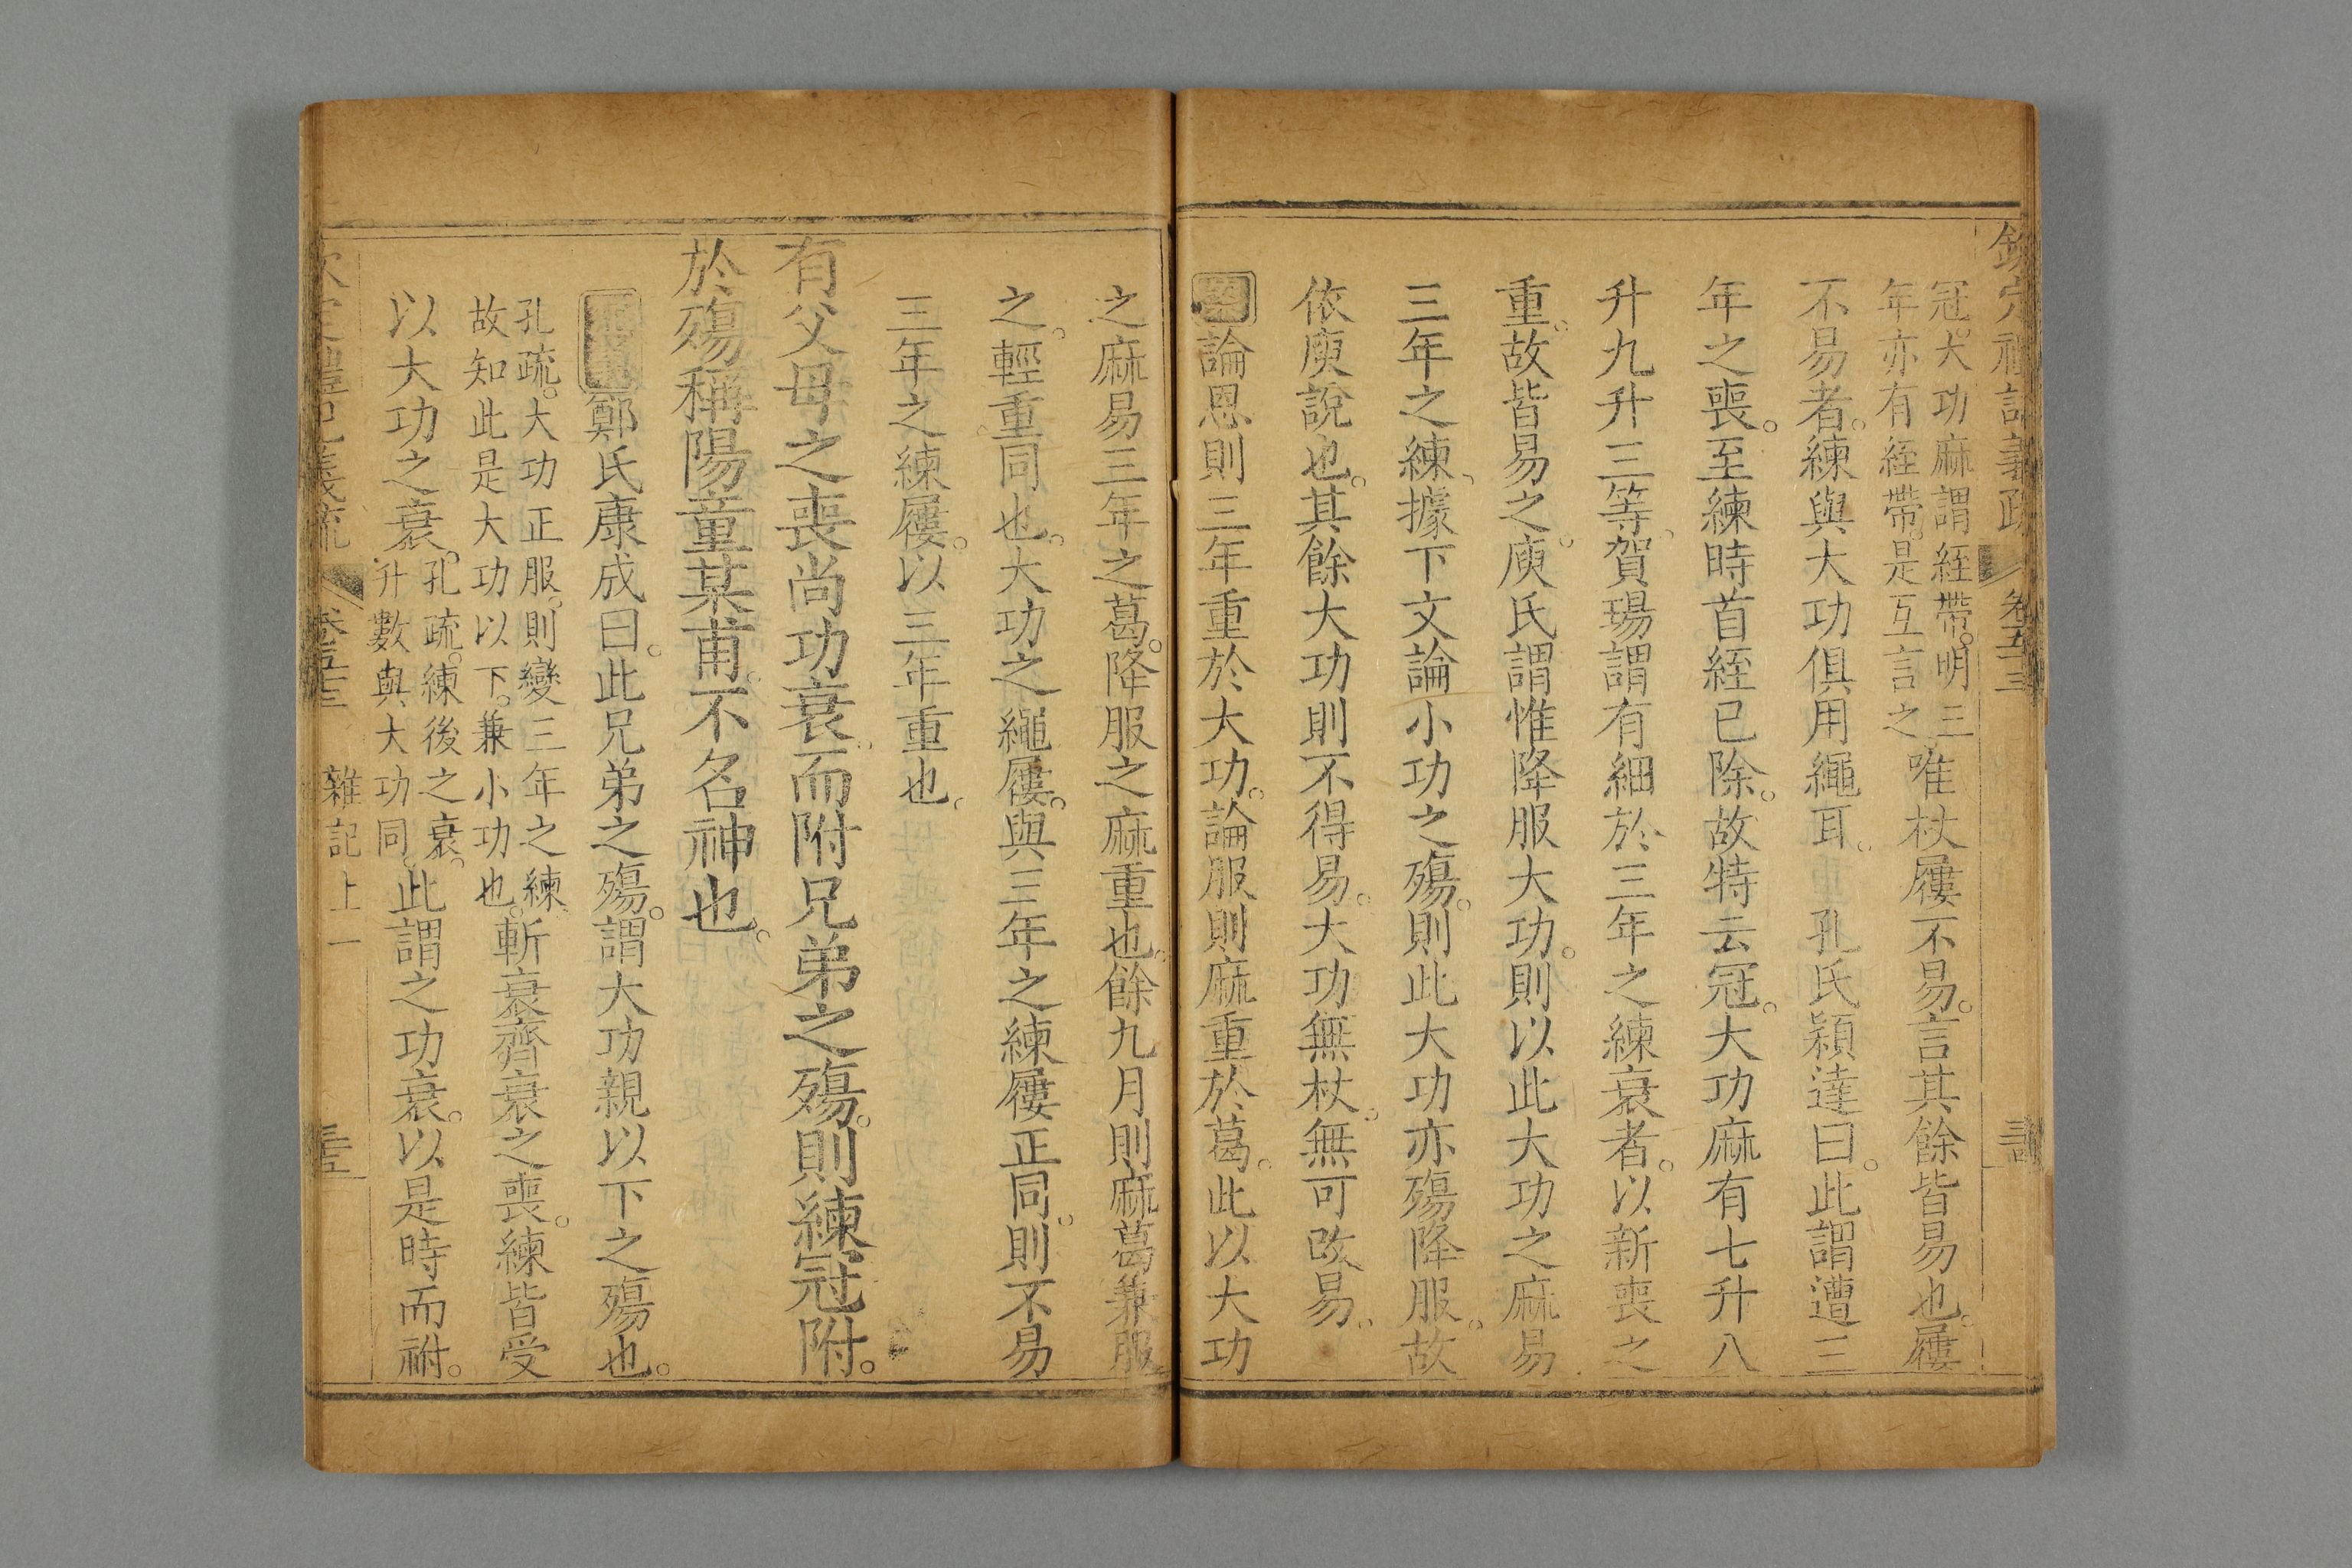 冠。大功麻謂絰帶。明三
年亦有絰帶。是互言之
唯杖屨不易。言其餘皆易也。屨
不易者。練與大功俱用繩耳。 孔氏穎達曰。此謂遭三
年之喪。至練時首絰已除。故特云冠。大功麻有七升八
升九升三等。賀瑒謂有細於三年之練衰者。以新喪之
重。故皆易之。庾氏謂惟降服大功。則以此大功之麻易
三年之練、據下文論小功之殤。則此大功亦殤降服。故
依庾說也。其餘大功則不得易。大功無杖。無可改易。
論恩則三年重於大功。論服則麻重於葛。此以大功
之麻易三年之葛。降服之麻重也。餘九月則麻葛兼服
之。輕重同也。大功之繩屨。與三年之練屨正同。則不易
三年之練屨。以三年重也。
有父母之喪尚功衰。而附兄弟之殤。則練冠附。
於殤稱陽童某甫。不名神也。
鄭氏康成曰。此兄弟之殤。謂大功親以下之殤也。
孔疏。大功正服。則變三年之練
故知此是大功以下。兼小功也。
斬衰齊衰之喪。練皆受
以大功之衰。
孔疏。練後之衰。
升數與大功同。
此謂之功衰。以是時而祔。
卷五十三
雜記上一